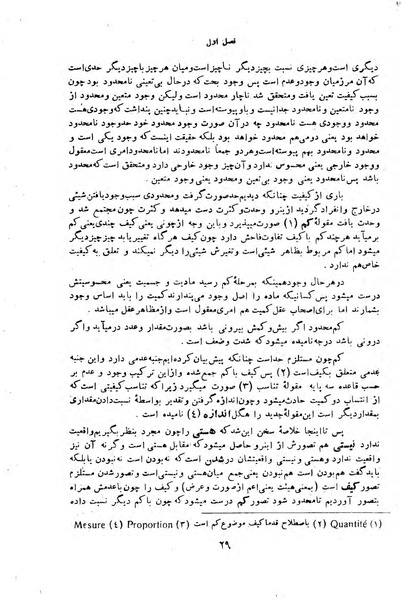 فصل اول
دیگری است وهرچیزی نسبت بچیزدیگر ناچیزاست ومیان هرچیز باچیزدیگر حدی‌است
که‌آن مرزمیان وجودوعدم است پس وجود بحت که‌درحال بی‌تعینی نامحدود بودچون
بسبب کیفیت تعین یافت ومتحقق شد ناچار محدود است ولیکن وجود متعین ومحدود
از وجود بی‌تعین ونامحدود جدانیست وباوپیوسته‌است ونبایدچنین پنداشت که‌وجودی‌هست
محدود ووجودی هست نامحدود چه درآن صورت وجود محدود خود حدوجود نامحدود
خواهد بود یعنی دومی‌هم محدود خواهد بود بلکه حقیقت اینست که وجود یکی است و
محدود ونامحدود بهم پیوسته‌است وهردو جمعاً نامحدودند امانامحدودامری‌است‌معقول
ووجود خارجی یعنی محسوس ندارد وآن‌چیز وجود خارجی دارد ومتحقق است که‌محدود
باشد پس نامحدود یعنی وجود بی‌تعین ومحدود یعنی وجود متعین .
باری ازکیفیت چنانکه دیدیم‌حدصورت‌گرفت ومحدودی سبب‌وجودیافتن‌شیئی
درخارج وانفرادگردید ازینرو وحدت‌وکثرت دست میدهد و کثرت چون مجتمع شد و
وحدت یافت مقولهٔ کم (۱) صورت‌میپذیرد وباین وجه ازچونی یعنی کیف چندی‌یعنی‌کم
برمیآید هرچندکم باکیف تفاوت‌فاحش دارد چون کیف هرگاه تغییریابد چیز چیزدیگر
میشود اماکم مربوط بظاهر شیئی‌است وتغیرش شیئی‌را دیگر نمیکند و تعلق به کیفیت
خاص‌هم ندارد .
درهرحال وجودهمینکه بمرحلهٔ‌کم رسید مادیت و جسمیت یعنی محسوسیتش
درست میشود پس‌کسانیکه ماده را اصل وجود می‌پندارندکمیت را باید اساس وجود
بشمارند اما برای‌اصحاب عقل‌کمیت هم امری‌معقول است وازمظاهرعقل میباشد .
کم‌محدود اگر بیش‌وکمش بیرونی باشد بصورت‌مقدار وعدد درمیآید واگر
درونی باشد درجه‌نامیده میشودکه شدت وضعف است .
کم‌چون مستلزم حداست چنانکه پیش‌بیان‌کرده‌ایم‌جنبه‌عدمی دارد واین جنبه
عدمی متعلق بکیف‌است (۲) پس کیف باکم جمع‌شده وازاین ترکیب وجود و عدم بر
حسب قاعده سه پایه مقولهٔ تناسب (۳) صورت میگیرد زیراکه تناسب کیفیتی‌است که
از انتساب دوکمیت حادث‌میشود وچون‌اندازه‌گرفتن وتقدیر بواسطهٔ نسبت‌دادن‌مقداری
بمقداردیگر است این‌مقوله‌جدید را هگل اندازه (٤) نامیده است .
پس تااینجا خلاصهٔ سخن این‌شد که هستی راچون مجرد بنظربگیریم‌واقعیت
ندارد نیستی هم تصورش از اینرو حاصل میشودکه مقابل هستی است و گرنه آن نیز
واقعیت ندارد وهستی و نیستی واقعیتشان درشدن است که نه‌بودن است نه‌نبودن یابلکه
بایدگفت هم‌بودن است هم‌نبودن یعنی‌جمع میان‌هستی ونیستی‌است وتصورشدن مستلزم
تصور کیف است (بمعنی‌هیئت یعنی‌اعم ازصورت وعرض) و کیف را چون باعدمش همراه
بتصور آوردیم نامحدود شود تصور کم درست میشودکه چون باکم دیگر نسبت داده
(۱) Quantité (۲) باصطلاح قدماکیف موضوع‌کم است (۳) Proportion (٤) Mesure
۲۹